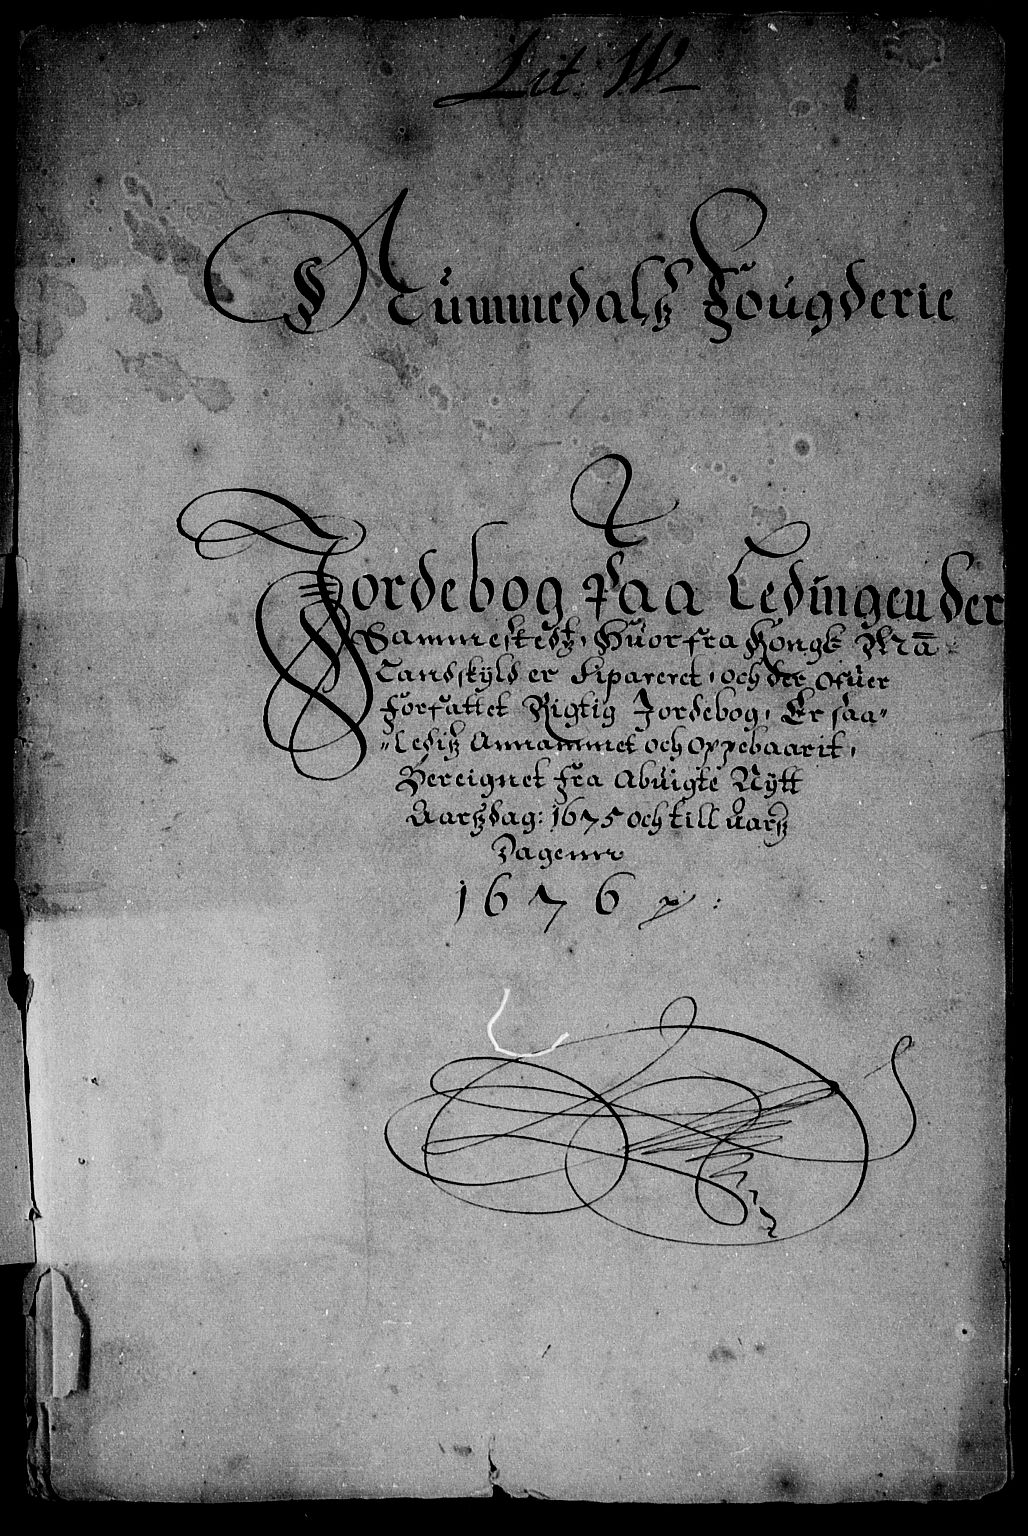 Lit: W
Nummedalß Fougderie
Jordebog Paa Ledingen der
Sammestedtz, Huor fra Kongl: Maÿ
Landskÿld er Sipareret, och der ofuer
Forfattet Rigtig Jordebog, Er saa-
-lediß Annammet och Oppebaarit,
Bereignet fra Abuigte Nÿtt
Aarßdag: 1675 och till Aarß
Dagenn
1676